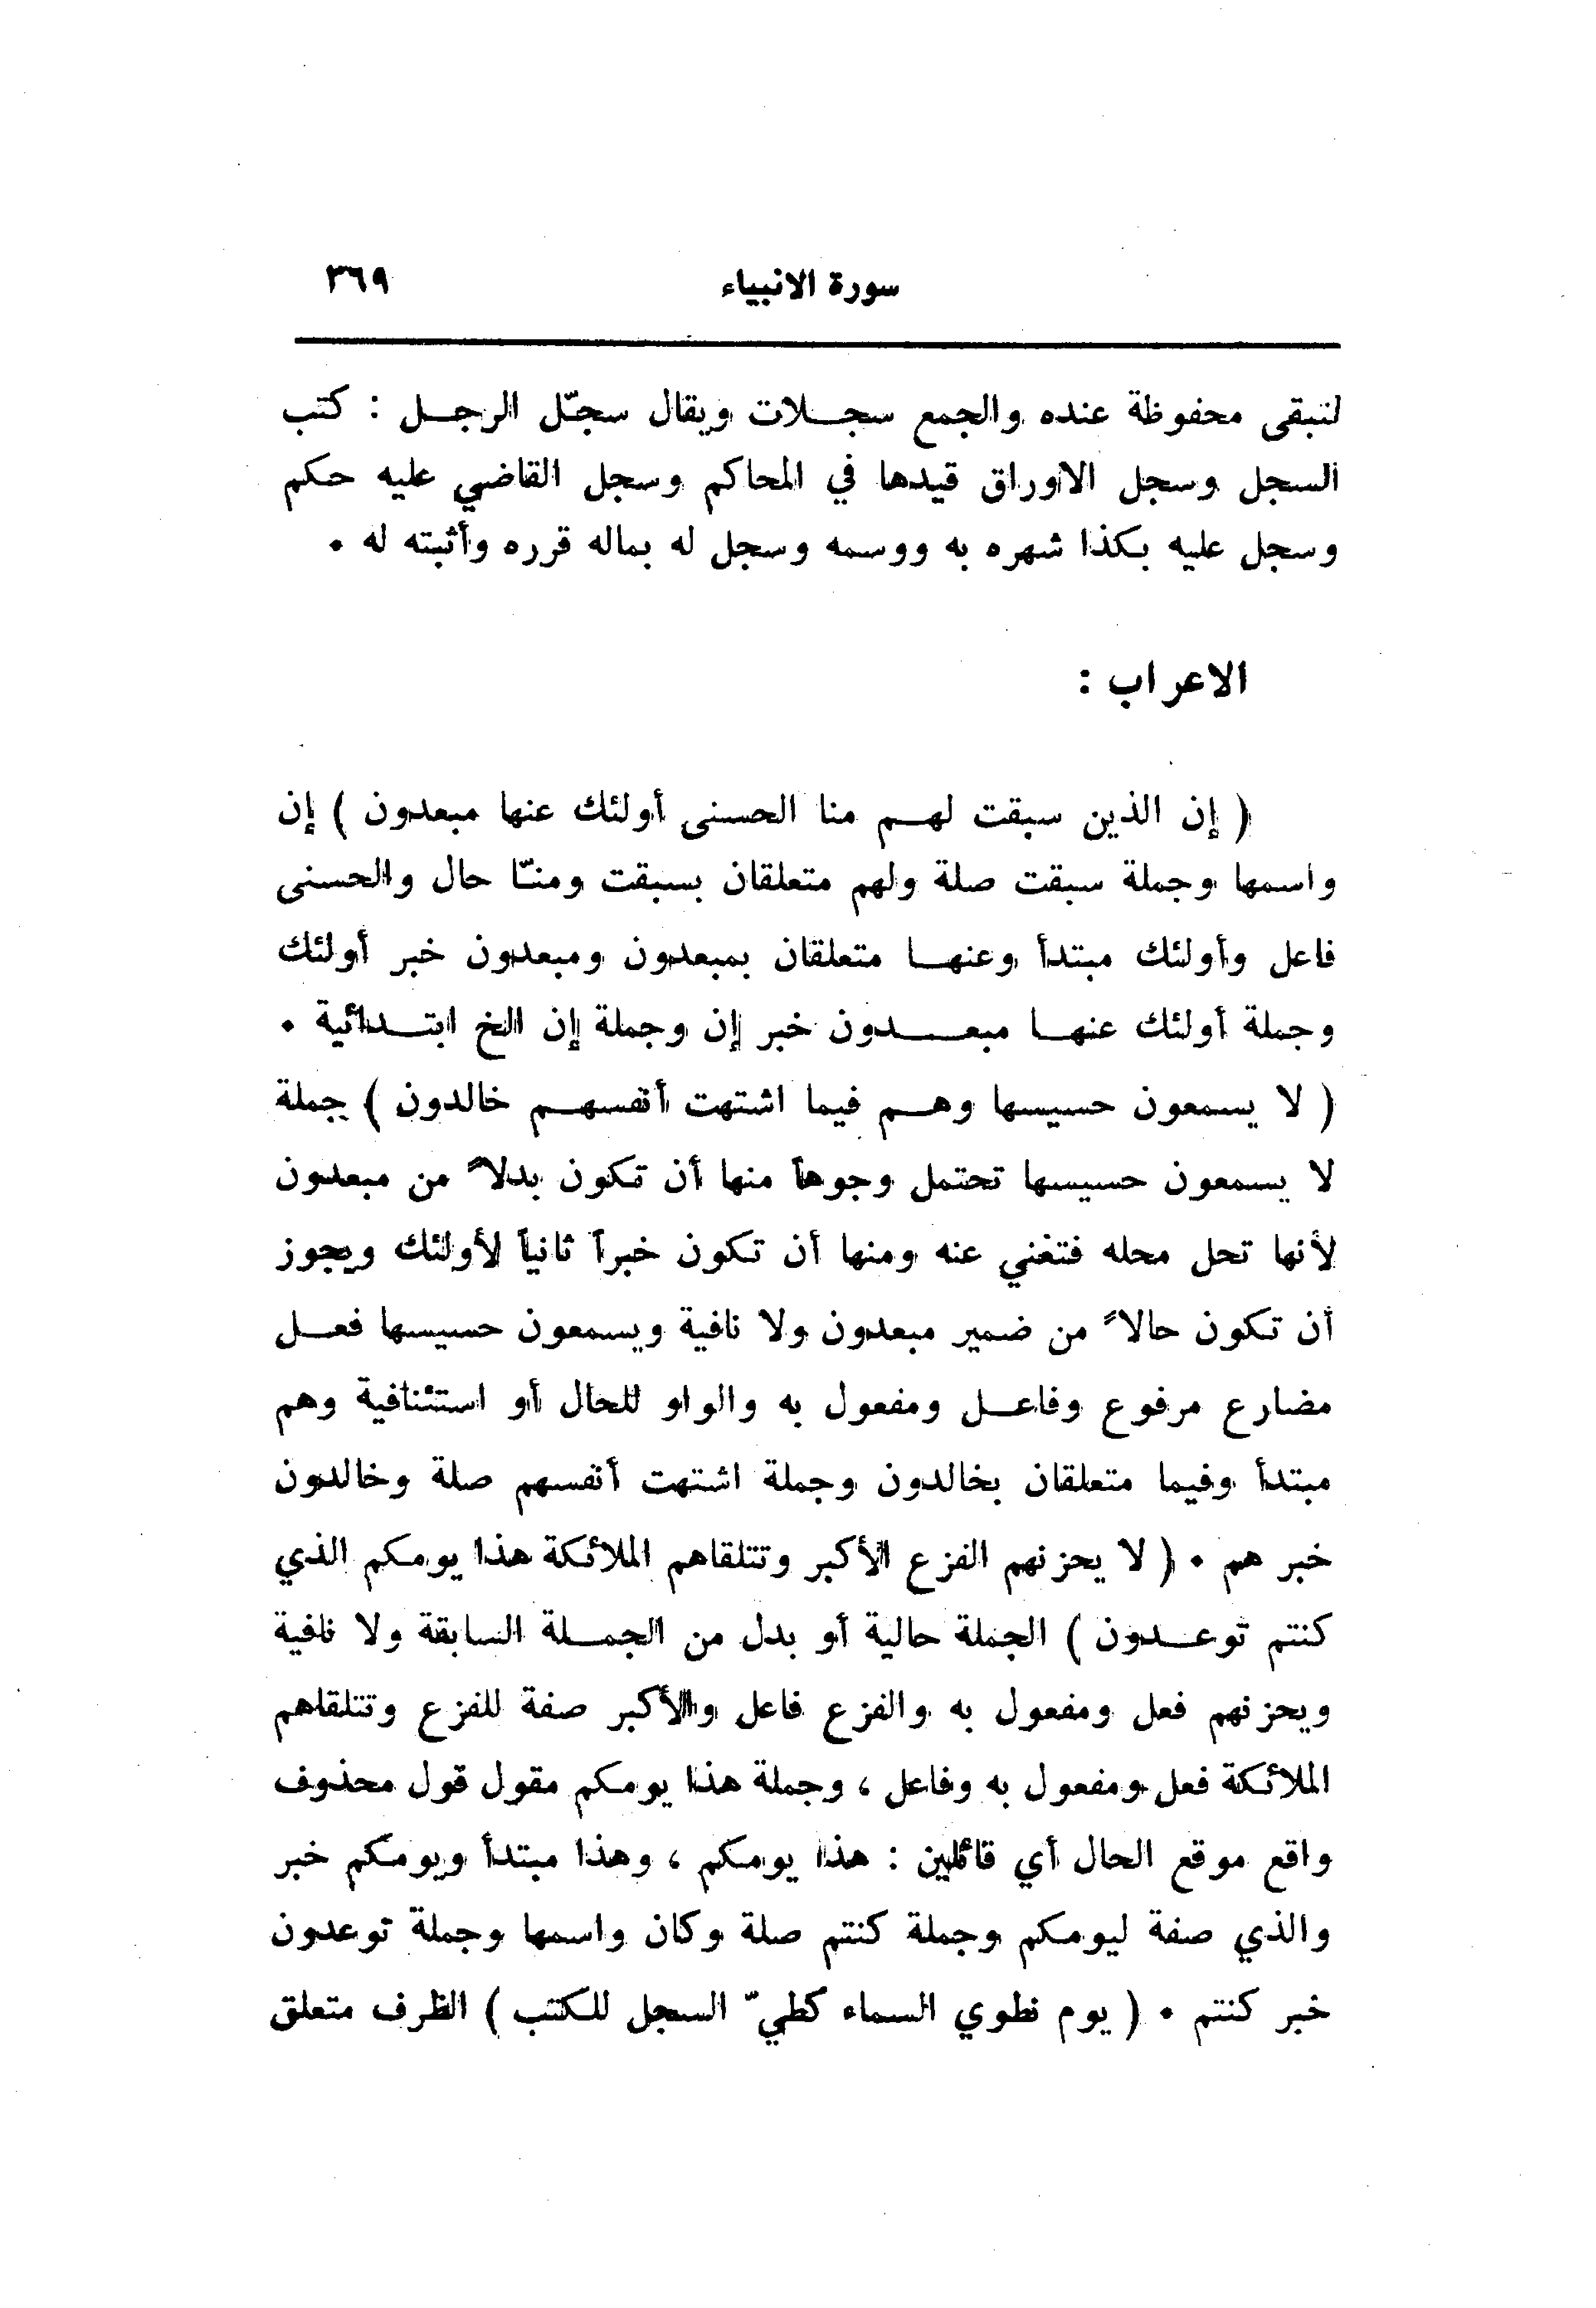 سورة الانبياء ٣٦٩
لتبقى محفوظة عنده والجمع سجلات ويقال سجّل الرجل : كتب
السجل وسجل الاوراق قيدها في المحاكم وسجل القاضي عليه حكم
وسجل عليه بكذا شهره به ووسمه وسجل له بماله قرره وأثبته له .
الاعراب :
( إن الذين سبقت لهم منا الحسنى أولئك عنها مبعدون ) إن
واسمها وجملة سبقت صلة ولهم متعلقان بسبقت ومنّا حال والحسنى
فاعل وأولئك مبتدأ وعنها متعلقان بمبعدون ومبعدون خبر أولئك
وجملة أولئك عنها مبعدون خبر إن وجملة إن الخ ابتدائية .
( لا يسمعون حسيسها وهم فيما اشتهت أنفسهم خالدون ) جملة
لا يسمعون حسيسها تحتمل وجوهاً منها أن تكون بدلاً من مبعدون
لأنها تحل محله فتغني عنه ومنها أن تكون خبراً ثانياً لأولئك ويجوز
أن تكون حالاً من ضمير مبعدون ولا نافية ويسمعون حسيسها فعل
مضارع مرفوع وفاعل ومفعول به والواو للحال أو استئنافية وهم
مبتدأ وفيما متعلقان بخالدون وجملة اشتهت أنفسهم صلة وخالدون
خبر هم . ( لا يحزنهم الفزع الأكبر وتتلقاهم الملائكة هذا يومكم الذي
كنتم توعدون ) الجملة حالية أو بدل من الجملة السابقة ولا نافية
ويحزنهم فعل ومفعول به والفزع فاعل والأكبر صفة للفزع وتتلقاهم
الملائكة فعل ومفعول به وفاعل ، وجملة هذا يومكم مقول قول محذوف
واقع موقع الحال أي قائلين : هذا يومكم ، وهذا مبتدأ ويومكم خبر
والذي صفة ليومكم وجملة كنتم صلة وكان واسمها وجملة توعدون
خبر كنتم . ( يوم نطوي السماء كطيّ السجل للكتب ) الظرف متعلق